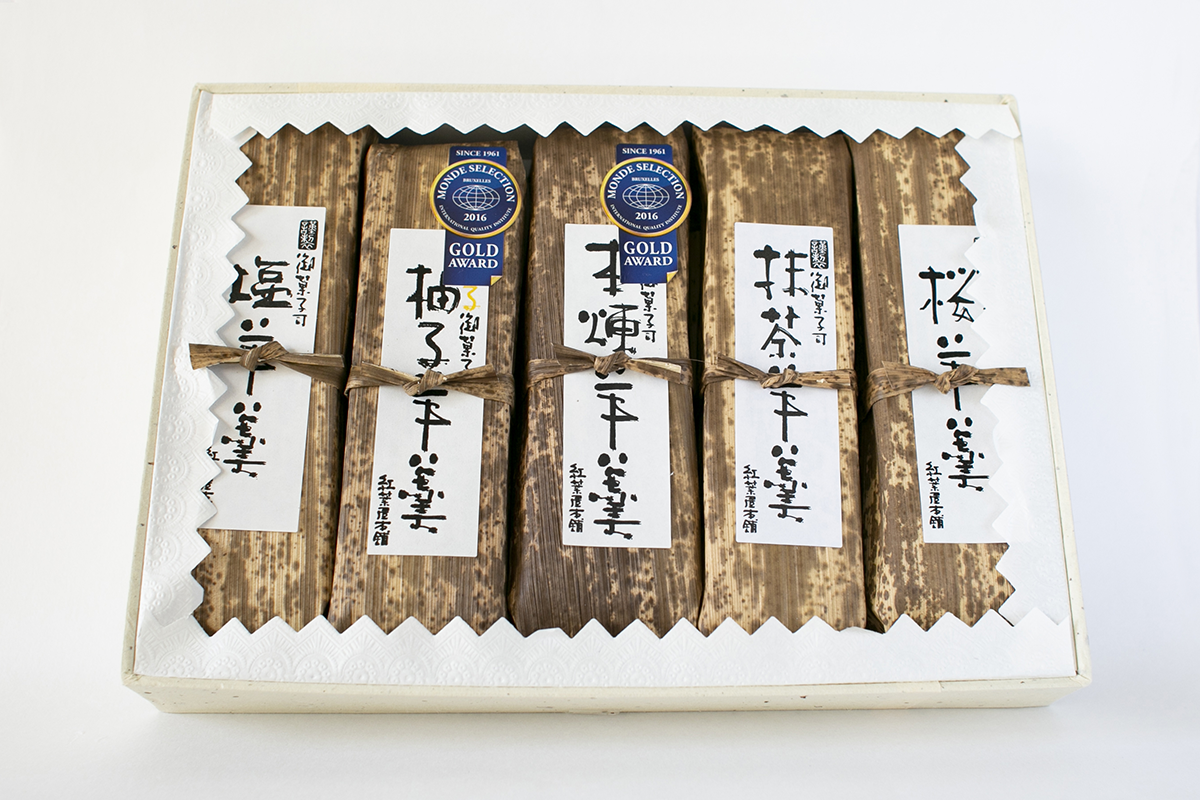 謹製
御菓子司
塩羊羹
SINCE 1961
MONDE SELECTION
BRUXELLES
2016
INTERNATIONAL QUALITY INSTITUTE
GOLD
AWARD
御菓子
柚子羊羹
紅葉屋本舗
SINCE 1961
MONDE SELECTION
BRUXELLES
2016
INTERNATIONAL QUALITY INSTITUTE
GOLD
AWARD
御菓子司
本煉羊羹
紅葉屋本舗
謹製
御菓子司
抹茶羊羹
紅葉屋本舗
桜羊羹
紅葉屋本舗